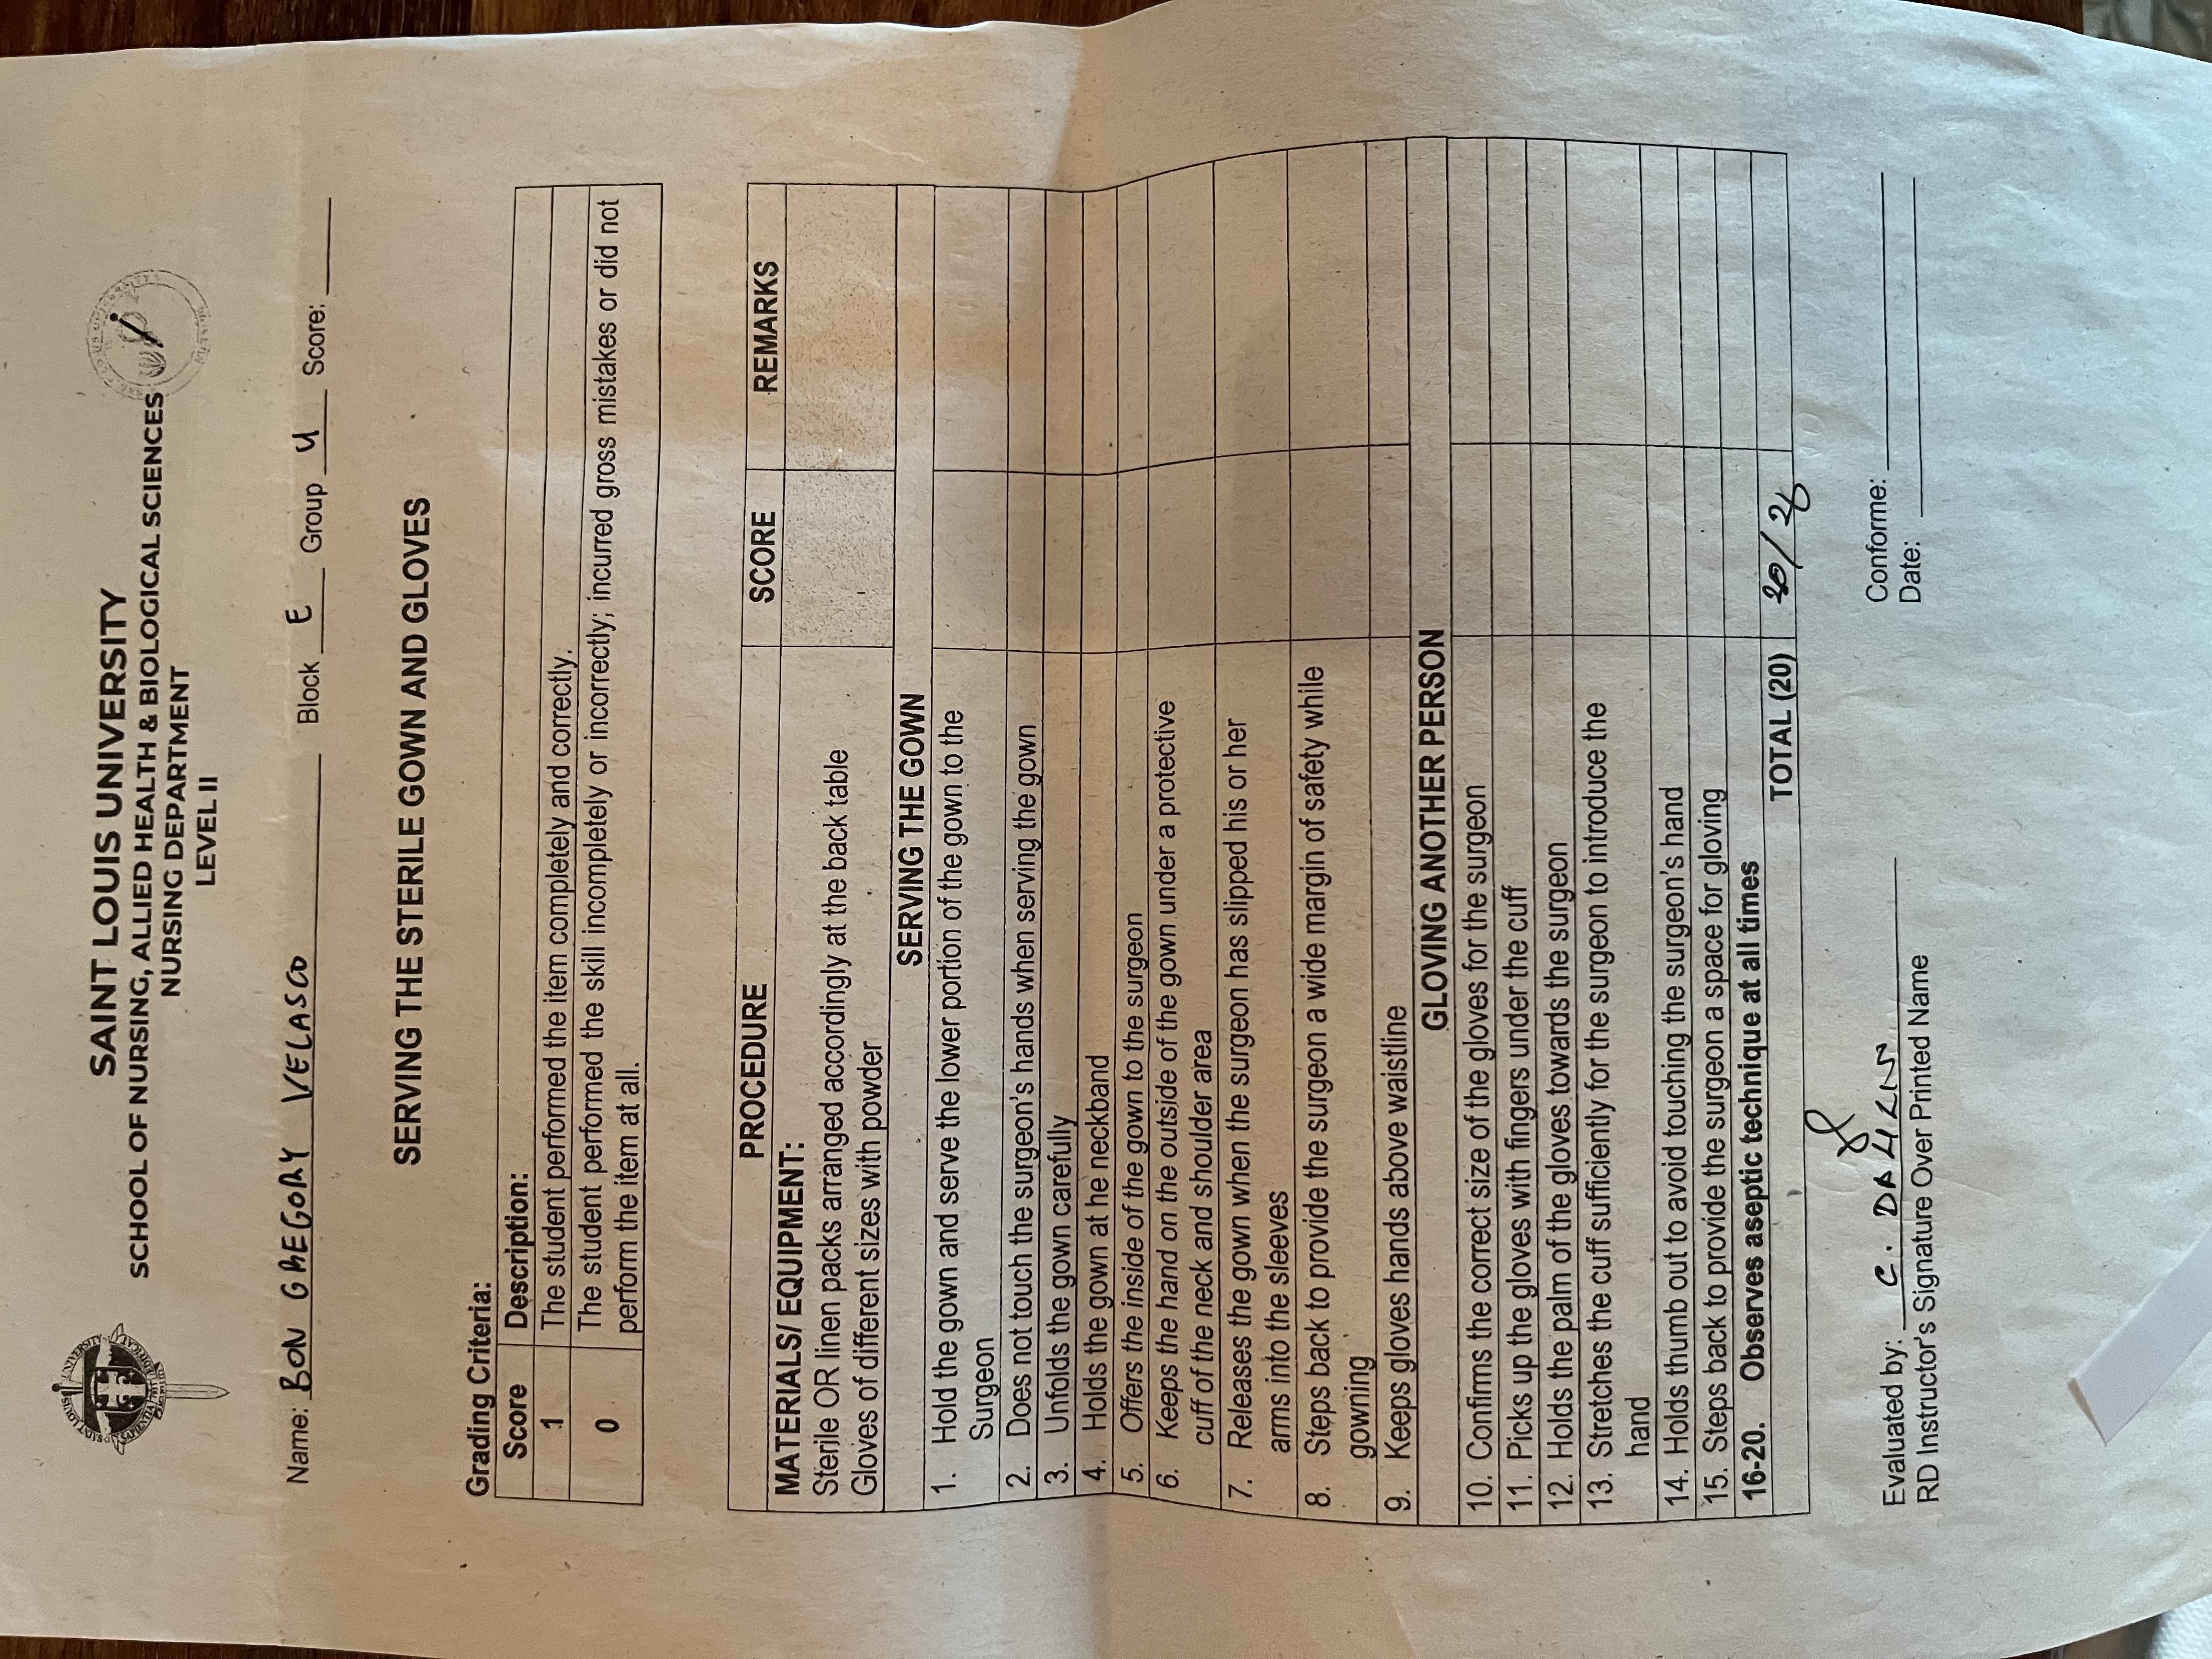 SAINT LOUIS UNIVERSITY
SCHOOL OF NURSING, ALLIED HEALTH & BIOLOGICAL SCIENCES
NURSING DEPARTMENT
LEVEL II
Name: BON GREGORY VELASCO Block E Group 4 Score:
SERVING THE STERILE GOWN AND GLOVES
Grading Criteria:
Score Description:
1 The student performed the item completely and correctly.
0 The student performed the skill incompletely or incorrectly; incurred gross mistakes or did not
perform the item at all.
PROCEDURE SCORE REMARKS
MATERIALS/ EQUIPMENT:
Sterile OR linen packs arranged accordingly at the back table
Gloves of different sizes with powder
SERVING THE GOWN
1. Hold the gown and serve the lower portion of the gown to the
Surgeon
2. Does not touch the surgeon's hands when serving the gown
3. Unfolds the gown carefully
4. Holds the gown at he neckband
5. Offers the inside of the gown to the surgeon
6. Keeps the hand on the outside of the gown under a protective
cuff of the neck and shoulder area
7. Releases the gown when the surgeon has slipped his or her
arms into the sleeves
8. Steps back to provide the surgeon a wide margin of safety while
gowning
9. Keeps gloves hands above waistline
GLOVING ANOTHER PERSON
10. Confirms the correct size of the gloves for the surgeon
11. Picks up the gloves with fingers under the cuff
12. Holds the palm of the gloves towards the surgeon
13. Stretches the cuff sufficiently for the surgeon to introduce the
hand
14. Holds thumb out to avoid touching the surgeon's hand
15. Steps back to provide the surgeon a space for gloving
16-20. Observes aseptic technique at all times
TOTAL (20)
Evaluated by: C. Conforme:
RD Instructor's Signature Over Printed Name Date: